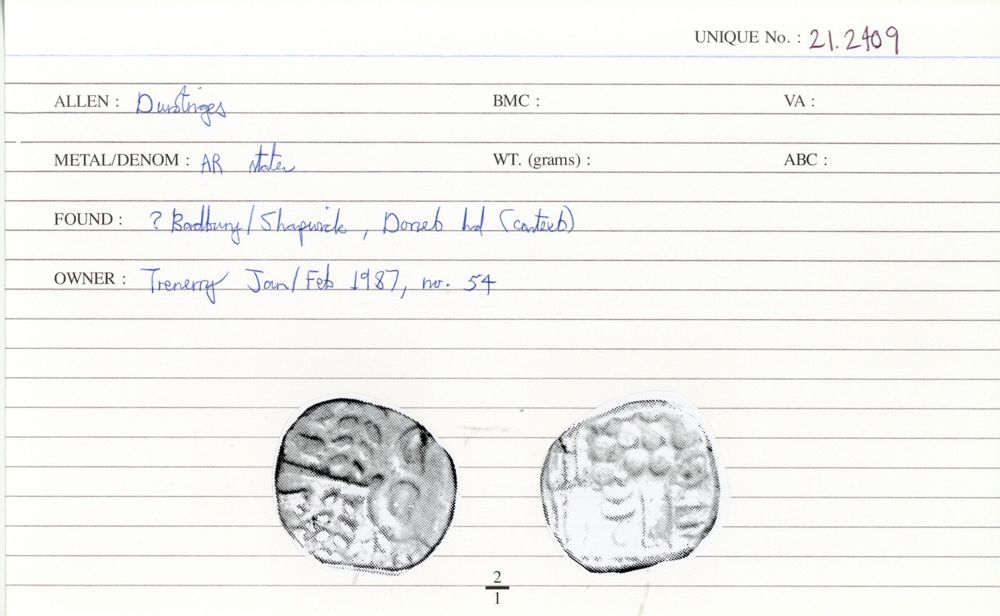 UNIQUE No. : 21.2409
ALLEN : Durotriges BMC : VA :
METAL/DENOM : AR stater WT. (grams) : ABC :
FOUND : ? Badbury/Shapwick, Dorset hd (contexts)
OWNER : Trenerry Jan/Feb 1987, no. 54
2
1